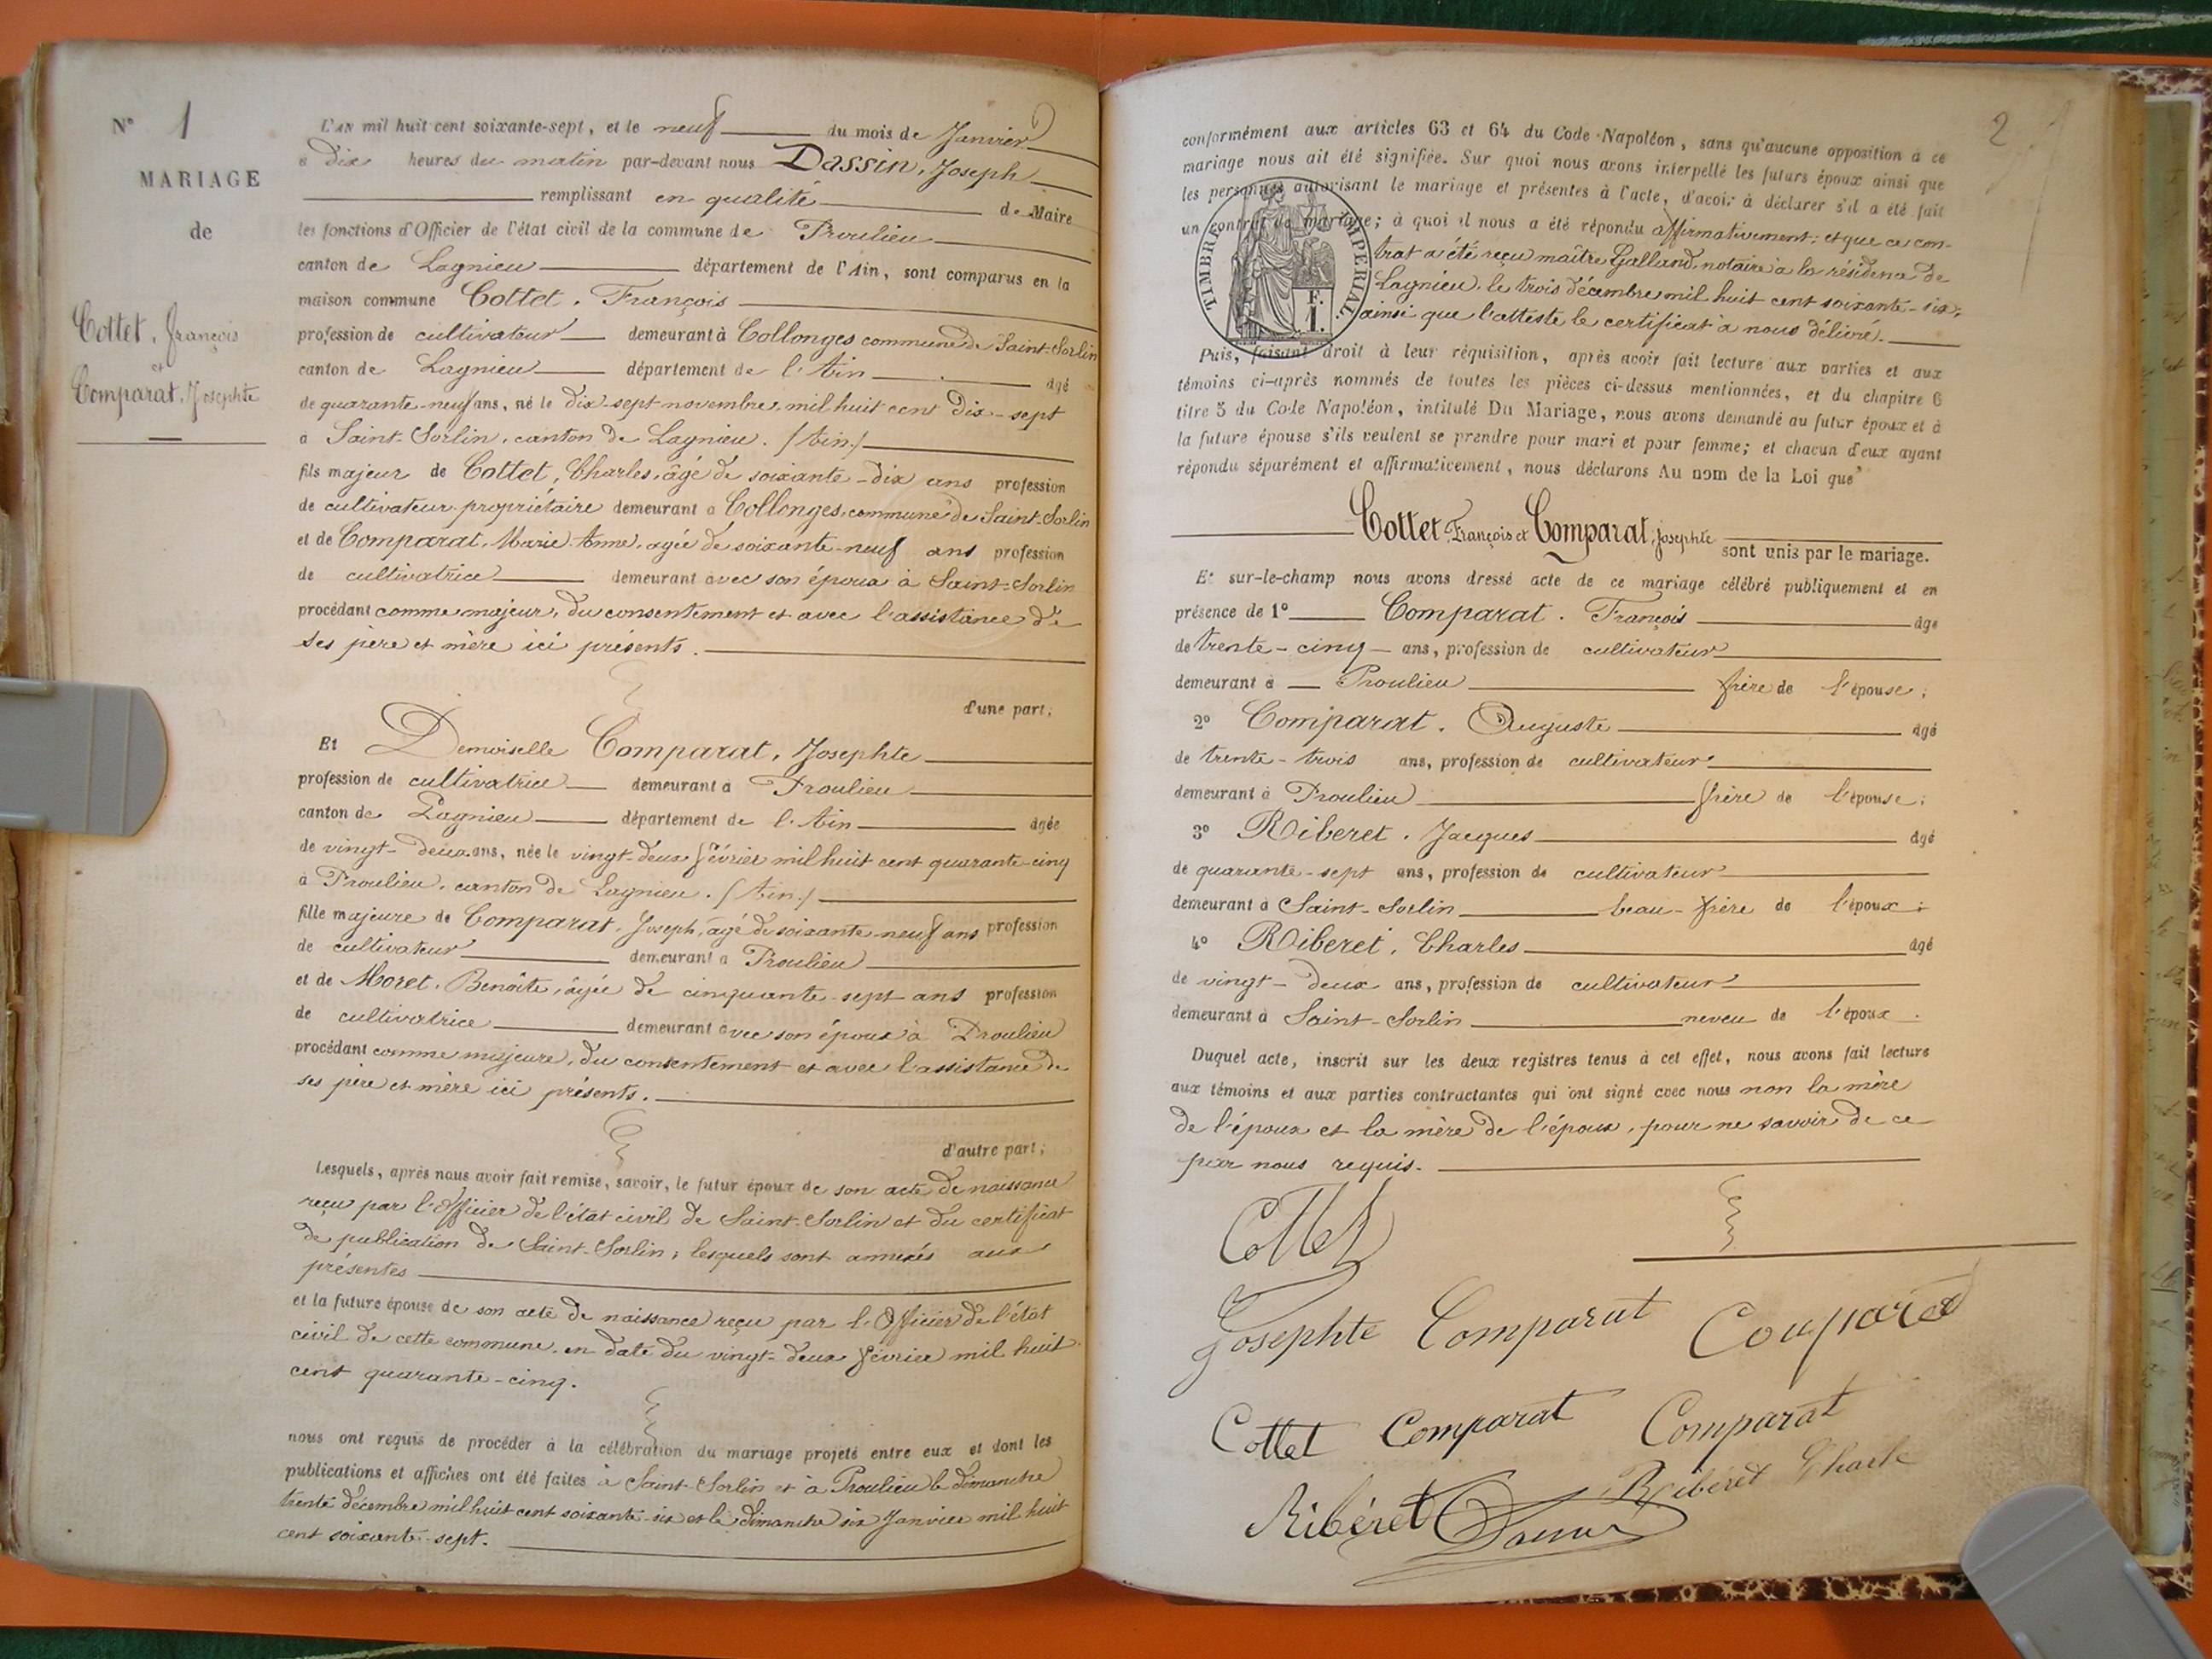 N° 1
MARIAGE
de
Cottet, françois
et
Comparat, Josephte
L'AN mil huit cent soixante-sept, et le neuf du mois de Janvier
à Dix heures du matin par-devant nous Dassin, Joseph
remplissant en qualité de Maire
les fonctions d'Officier de l'état civil de la commune de Proulieu
canton de Lagnieu département de l'Ain, sont comparus en la
maison commune Cottet, François
profession de cultivateur demeurant à Collonges commune de Saint-Sorlin
canton de Lagnieu département de l'Ain âgé
de quarante-neuf ans, né le Dix-sept novembre, mil huit cent Dix-sept
à Saint-Sorlin, canton de Lagnieu. (Ain.)
fils majeur de Cottet, Charles, âgé de soixante-dix ans profession
de cultivateur-propriétaire demeurant à Collonges, commune de Saint-Sorlin
et de Comparat, Marie-Anne, agée de soixante-neuf ans profession
de cultivatrice demeurant avec son époux à Saint-Sorlin
procédant comme majeur, du consentement et avec l'assistance de
ses père et mère ici présents.
d'une part;
Et Demoiselle Comparat, Josephte
profession de cultivatrice demeurant à Proulieu
canton de Lagnieu département de l'Ain âgée
de vingt-deux ans, née le vingt-deux février mil huit cent quarante-cinq
à Proulieu, canton de Lagnieu. (Ain.)
fille majeure de Comparat, Joseph, âgé de soixante-neuf ans profession
de cultivateur demeurant à Proulieu
et de Moret, Benoîte, âgée de cinquante-sept ans profession
de cultivatrice demeurant avec son époux à Proulieu
procédant comme majeure, du consentement et avec l'assistance de
ses père et mère ici présents.
d'autre part;
Lesquels, après nous avoir fait remise, savoir, le futur époux de son acte de naissance
reçu par l'Officier de l'état civil de Saint-Sorlin et du certificat
de publication de Saint-Sorlin; lesquels sont annexés aux
présentes
et la future épouse de son acte de naissance reçu par l'Officier de l'état
civil de cette commune, en date du vingt-deux février mil huit
cent quarante-cinq.
nous ont requis de procéder à la célébration du mariage projeté entre eux et dont les
publications et affiches ont été faites à Saint-Sorlin et à Proulieu le dimanche
trente décembre mil huit cent soixante-six et le dimanche six Janvier mil huit
cent soixante-sept.
2
conformément aux articles 63 et 64 du Code Napoléon, sans qu'aucune opposition à ce
mariage nous ait été signifiée. Sur quoi nous avons interpellé les futurs époux ainsi que
les personnes autorisant le mariage et présentes à l'acte, d'avoir à déclarer s'il a été fait
un contrat de mariage; à quoi il nous a été répondu affirmativement; et que ce con-
trat a été reçu maître Galland, notaire à la résidence de
Lagnieu, le trois décembre mil huit cent soixante-six,
ainsi que l'atteste le certificat à nous délivré.
TIMBRE IMPERIAL
F.
1.
Puis, faisant droit à leur réquisition, après avoir fait lecture aux parties et aux
témoins ci-après nommés de toutes les pièces ci-dessus mentionnées, et du chapitre 6
titre 5 du Code Napoléon, intitulé Du Mariage, nous avons demandé au futur époux et à
la future épouse s'ils veulent se prendre pour mari et pour femme; et chacun d'eux ayant
répondu séparément et affirmativement, nous déclarons Au nom de la Loi que
Cottet, François et Comparat, Josephte sont unis par le mariage.
Et sur-le-champ nous avons dressé acte de ce mariage célébré publiquement et en
présence de 1° Comparat. François âgé
de trente-cinq ans, profession de cultivateur
demeurant à Proulieu frère de l'épouse;
2° Comparat. Auguste âgé
de trente-trois ans, profession de cultivateur
demeurant à Proulieu frère de l'épouse;
3° Riberet. Jacques âgé
de quarante-sept ans, profession de cultivateur
demeurant à Saint-Sorlin beau-frère de l'époux;
4° Riberet, Charles âgé
de vingt-deux ans, profession de cultivateur
demeurant à Saint-Sorlin neveu de l'époux.
Duquel acte, inscrit sur les deux registres tenus à cet effet, nous avons fait lecture
aux témoins et aux parties contractantes qui ont signé avec nous non la mère
de l'époux et la mère de l'époux, pour ne savoir de ce
par nous requis.
Cottet
Josephte Comparat Comparat
Cottet Comparat Comparat
Ribéret Dassin Ribéret Charle